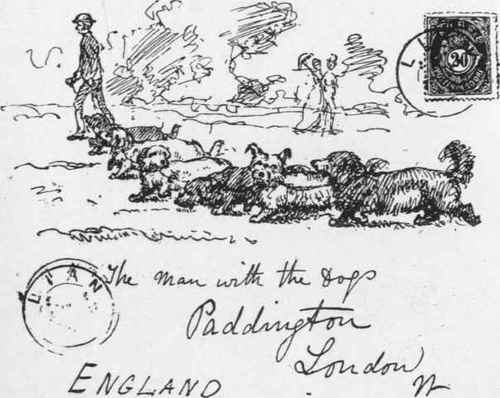 20
The man with the Dogs
Paddington
London
W
ENGLAND